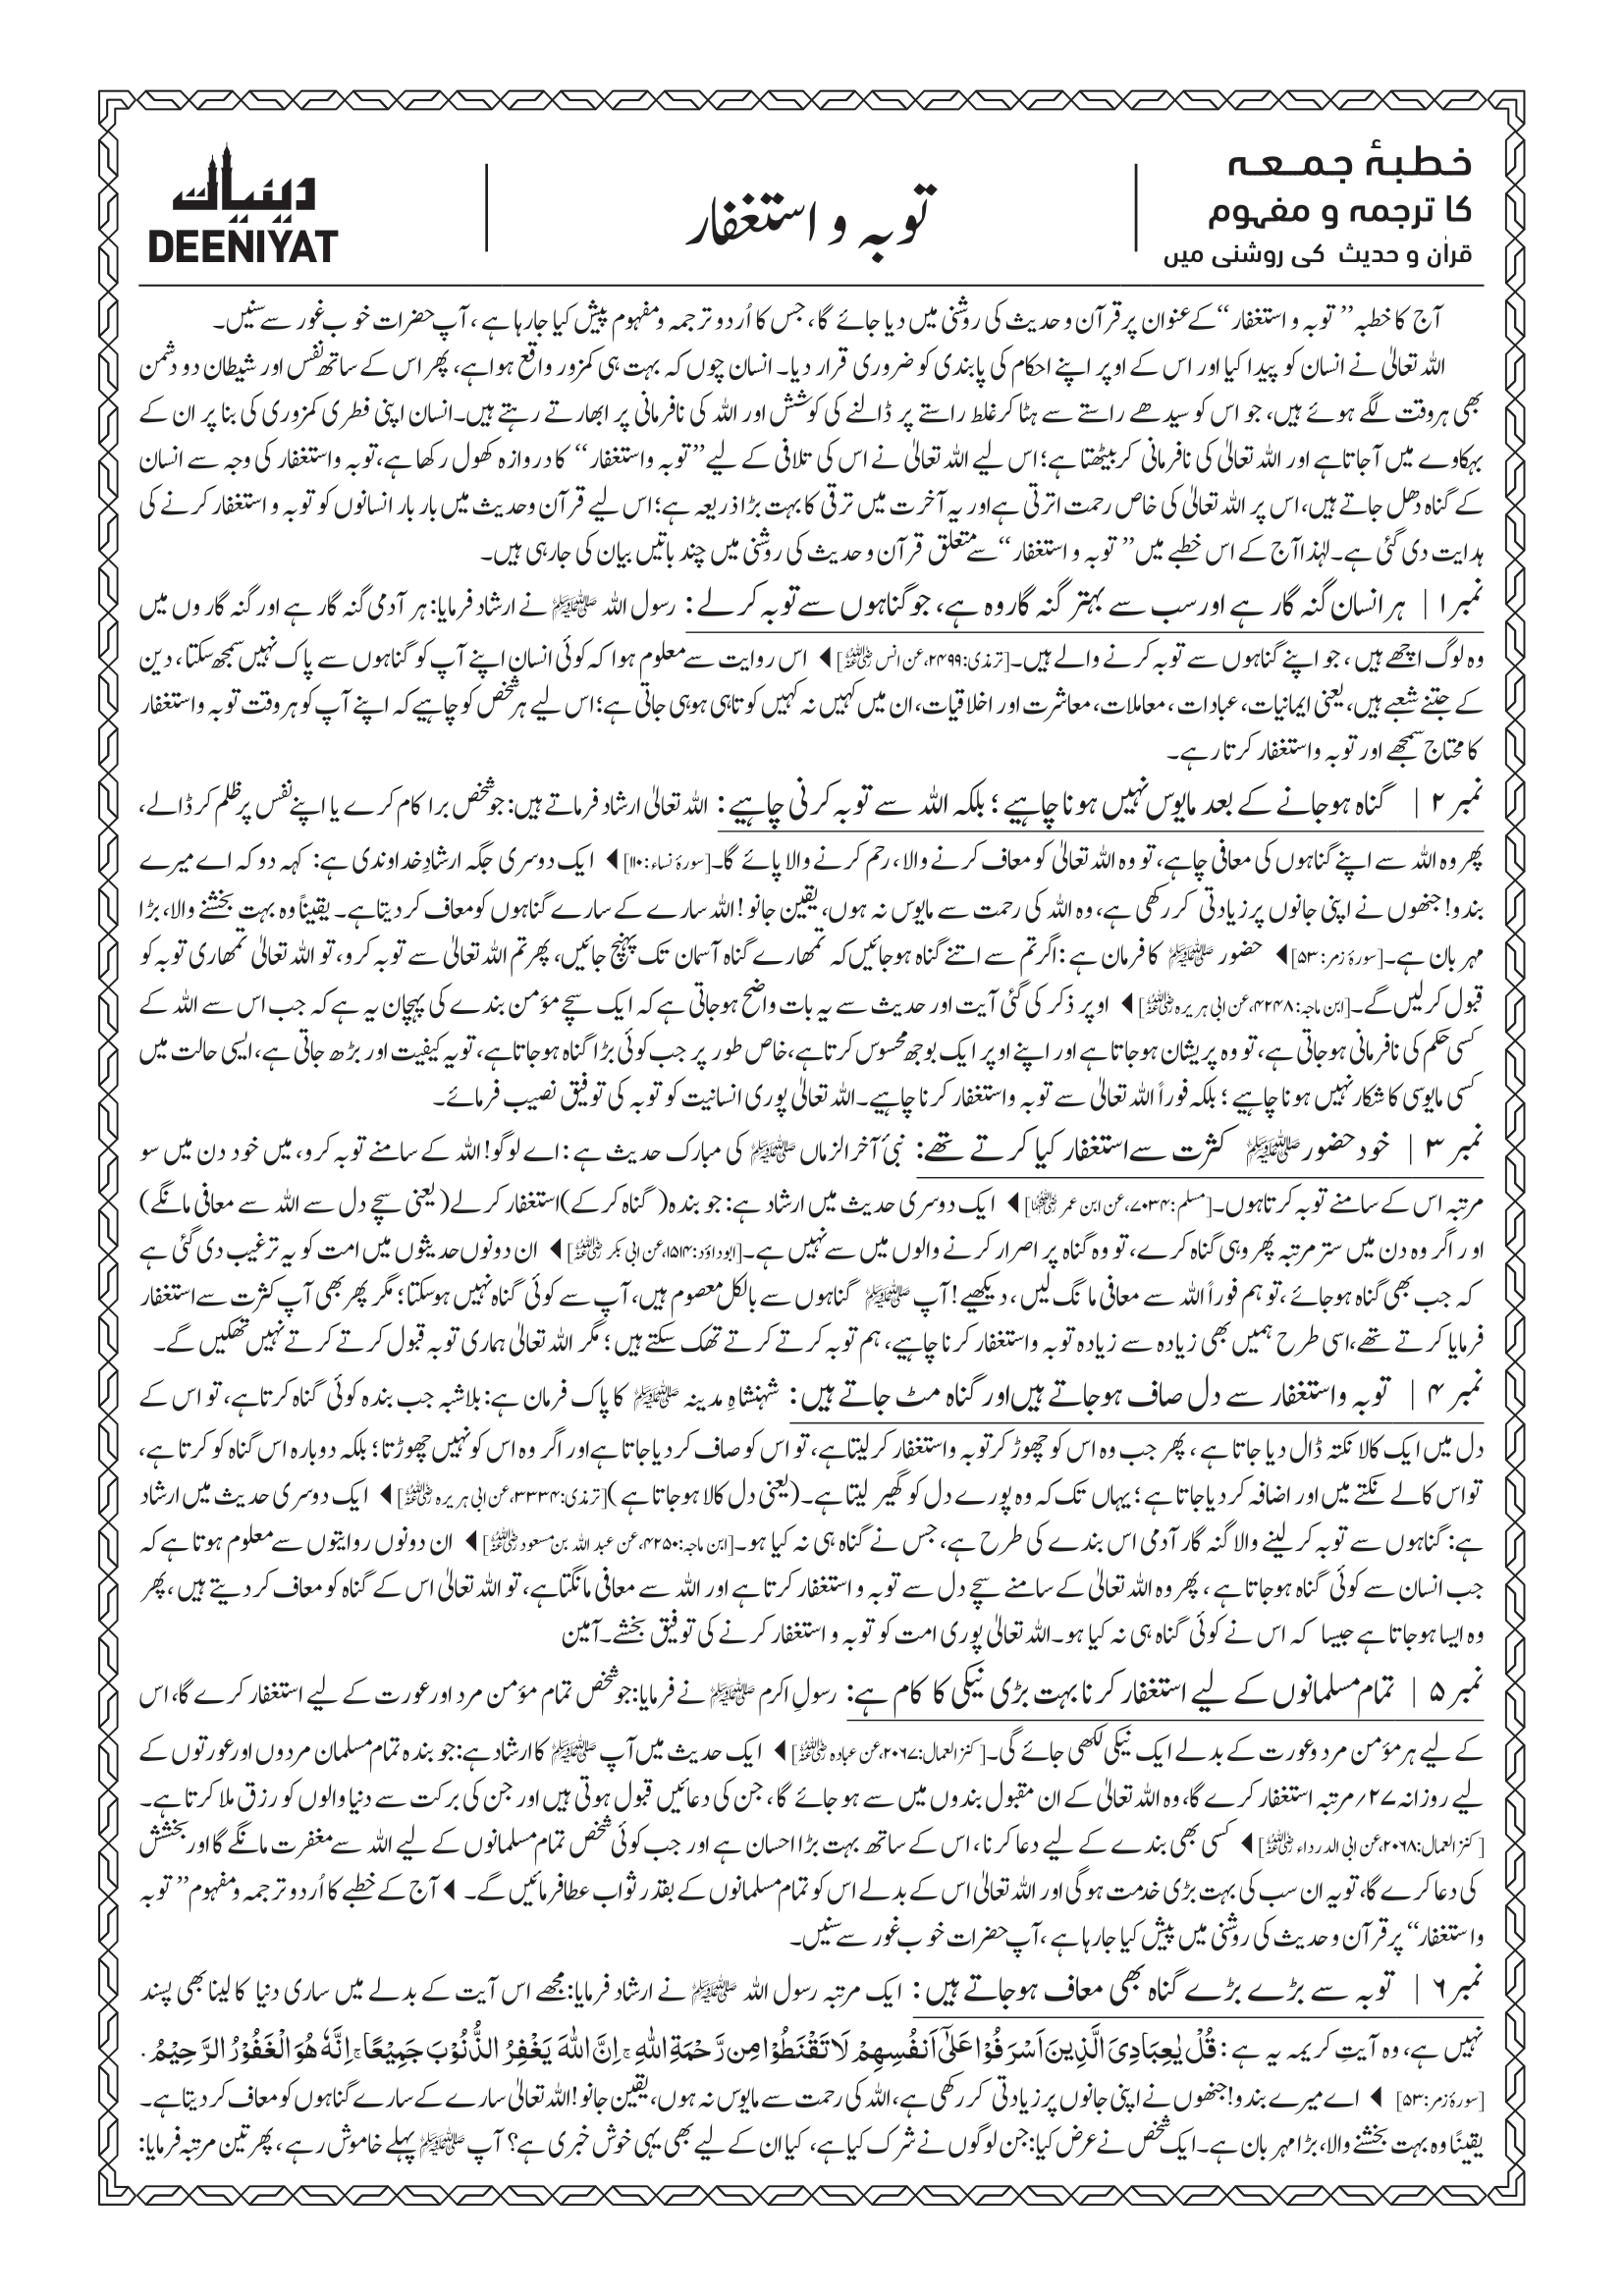 خطبۂ جمعہ
کا ترجمہ و مفہوم
قرآن و حدیث کی روشنی میں
توبہ و استغفار
دینیات
DEENIYAT
آج کا خطبہ ”توبہ و استغفار“ کے عنوان پر قرآن و حدیث کی روشنی میں دیا جائے گا، جس کا اُردو ترجمہ ومفہوم پیش کیا جارہا ہے، آپ حضرات خوب غور سے سنیں۔
اللہ تعالیٰ نے انسان کو پیدا کیا اور اس کے اوپر اپنے احکام کی پابندی کو ضروری قرار دیا۔ انسان چوں کہ بہت ہی کمزور واقع ہوا ہے، پھر اس کے ساتھ نفس اور شیطان دو دشمن
بھی ہر وقت لگے ہوئے ہیں، جو اس کو سیدھے راستے سے ہٹا کر غلط راستے پر ڈالنے کی کوشش اور اللہ کی نافرمانی پر ابھارتے رہتے ہیں۔ انسان اپنی فطری کمزوری کی بنا پر ان کے
بہکاوے میں آجاتا ہے اور اللہ تعالیٰ کی نافرمانی کر بیٹھتا ہے؛ اس لیے اللہ تعالیٰ نے اس کی تلافی کے لیے ”توبہ واستغفار“ کا دروازہ کھول رکھا ہے، توبہ واستغفار کی وجہ سے انسان
کے گناہ دھل جاتے ہیں، اس پر اللہ تعالیٰ کی خاص رحمت اترتی ہے اور یہ آخرت میں ترقی کا بہت بڑا ذریعہ ہے؛ اس لیے قرآن وحدیث میں بار بار انسانوں کو توبہ و استغفار کرنے کی
ہدایت دی گئی ہے۔ لہٰذا آج کے اس خطبے میں ”توبہ و استغفار“ سے متعلق قرآن و حدیث کی روشنی میں چند باتیں بیان کی جارہی ہیں۔
نمبر ۱ | ہر انسان گنہ گار ہے اور سب سے بہتر گنہ گار وہ ہے، جو گناہوں سے توبہ کرلے: رسول اللہ ﷺ نے ارشاد فرمایا: ہر آدمی گنہ گار ہے اور گنہ گاروں میں
وہ لوگ اچھے ہیں، جو اپنے گناہوں سے توبہ کرنے والے ہیں۔ [ترمذی: ۲۴۹۹، عن انس رضی اللہ عنہ] ◀ اس روایت سے معلوم ہوا کہ کوئی انسان اپنے آپ کو گناہوں سے پاک نہیں سمجھ سکتا، دین
کے جتنے شعبے ہیں، یعنی ایمانیات، عبادات، معاملات، معاشرت اور اخلاقیات، ان میں کہیں نہ کہیں کوتاہی ہو ہی جاتی ہے؛ اس لیے ہر شخص کو چاہیے کہ اپنے آپ کو ہر وقت توبہ واستغفار
کا محتاج سمجھے اور توبہ واستغفار کرتا رہے۔
نمبر ۲ | گناہ ہوجانے کے بعد مایوس نہیں ہونا چاہیے؛ بلکہ اللہ سے توبہ کرنی چاہیے: اللہ تعالیٰ ارشاد فرماتے ہیں: جو شخص برا کام کرے یا اپنے نفس پر ظلم کر ڈالے،
پھر وہ اللہ سے اپنے گناہوں کی معافی چاہے، تو وہ اللہ تعالیٰ کو معاف کرنے والا، رحم کرنے والا پائے گا۔ [سورۂ نساء: ۱۱۰] ◀ ایک دوسری جگہ ارشادِ خداوندی ہے: کہہ دو کہ اے میرے
بندو! جنھوں نے اپنی جانوں پر زیادتی کر رکھی ہے، وہ اللہ کی رحمت سے مایوس نہ ہوں، یقین جانو! اللہ سارے کے سارے گناہوں کو معاف کردیتا ہے۔ یقیناً وہ بہت بخشنے والا، بڑا
مہربان ہے۔ [سورۂ زمر: ۵۳] ◀ حضور ﷺ کا فرمان ہے: اگر تم سے اتنے گناہ ہوجائیں کہ تمھارے گناہ آسمان تک پہنچ جائیں، پھر تم اللہ تعالیٰ سے توبہ کرو، تو اللہ تعالیٰ تمھاری توبہ کو
قبول کرلیں گے۔ [ابن ماجہ: ۴۲۴۸، عن ابی ہریرہ رضی اللہ عنہ] ◀ اوپر ذکر کی گئی آیت اور حدیث سے یہ بات واضح ہوجاتی ہے کہ ایک سچے مؤمن بندے کی پہچان یہ ہے کہ جب اس سے اللہ کے
کسی حکم کی نافرمانی ہوجاتی ہے، تو وہ پریشان ہوجاتا ہے اور اپنے اوپر ایک بوجھ محسوس کرتا ہے، خاص طور پر جب کوئی بڑا گناہ ہوجاتا ہے، تو یہ کیفیت اور بڑھ جاتی ہے، ایسی حالت میں
کسی مایوسی کا شکار نہیں ہونا چاہیے؛ بلکہ فوراً اللہ تعالیٰ سے توبہ واستغفار کرنا چاہیے۔ اللہ تعالیٰ پوری انسانیت کو توبہ کی توفیق نصیب فرمائے۔
نمبر ۳ | خود حضور ﷺ کثرت سے استغفار کیا کرتے تھے: نبیٔ آخر الزماں ﷺ کی مبارک حدیث ہے: اے لوگو! اللہ کے سامنے توبہ کرو، میں خود دن میں سو
مرتبہ اس کے سامنے توبہ کرتا ہوں۔ [مسلم: ۷۰۳۴، عن ابن عمر رضی اللہ عنہما] ◀ ایک دوسری حدیث میں ارشاد ہے: جو بندہ (گناہ کرکے) استغفار کرلے (یعنی سچے دل سے اللہ سے معافی مانگے)
اور اگر وہ دن میں ستر مرتبہ پھر وہی گناہ کرے، تو وہ گناہ پر اصرار کرنے والوں میں سے نہیں ہے۔ [ابوداؤد: ۱۵۱۴، عن ابی بکر رضی اللہ عنہ] ◀ ان دونوں حدیثوں میں امت کو یہ ترغیب دی گئی ہے
کہ جب بھی گناہ ہوجائے، تو ہم فوراً اللہ سے معافی مانگ لیں، دیکھیے! آپ ﷺ گناہوں سے بالکل معصوم ہیں، آپ سے کوئی گناہ نہیں ہوسکتا؛ مگر پھر بھی آپ کثرت سے استغفار
فرمایا کرتے تھے، اسی طرح ہمیں بھی زیادہ سے زیادہ توبہ واستغفار کرنا چاہیے، ہم توبہ کرتے کرتے تھک سکتے ہیں؛ مگر اللہ تعالیٰ ہماری توبہ قبول کرتے کرتے نہیں تھکیں گے۔
نمبر ۴ | توبہ واستغفار سے دل صاف ہوجاتے ہیں اور گناہ مٹ جاتے ہیں: شہنشاہِ مدینہ ﷺ کا پاک فرمان ہے: بلاشبہ جب بندہ کوئی گناہ کرتا ہے، تو اس کے
دل میں ایک کالا نکتہ ڈال دیا جاتا ہے، پھر جب وہ اس کو چھوڑ کر توبہ واستغفار کرلیتا ہے، تو اس کو صاف کر دیا جاتا ہے اور اگر وہ اس کو نہیں چھوڑتا؛ بلکہ دوبارہ اس گناہ کو کرتا ہے،
تو اس کالے نکتے میں اور اضافہ کر دیا جاتا ہے؛ یہاں تک کہ وہ پورے دل کو گھیر لیتا ہے۔ (یعنی دل کالا ہوجاتا ہے) [ترمذی: ۳۳۳۴، عن ابی ہریرہ رضی اللہ عنہ] ◀ ایک دوسری حدیث میں ارشاد
ہے: گناہوں سے توبہ کرلینے والا گنہ گار آدمی اس بندے کی طرح ہے، جس نے گناہ ہی نہ کیا ہو۔ [ابن ماجہ: ۴۲۵۰، عن عبد اللہ بن مسعود رضی اللہ عنہ] ◀ ان دونوں روایتوں سے معلوم ہوتا ہے کہ
جب انسان سے کوئی گناہ ہوجاتا ہے، پھر وہ اللہ تعالیٰ کے سامنے سچے دل سے توبہ و استغفار کرتا ہے اور اللہ سے معافی مانگتا ہے، تو اللہ تعالیٰ اس کے گناہ کو معاف کر دیتے ہیں، پھر
وہ ایسا ہوجاتا ہے جیسا کہ اس نے کوئی گناہ ہی نہ کیا ہو۔ اللہ تعالیٰ پوری امت کو توبہ و استغفار کرنے کی توفیق بخشے۔ آمین
نمبر ۵ | تمام مسلمانوں کے لیے استغفار کرنا بہت بڑی نیکی کا کام ہے: رسولِ اکرم ﷺ نے فرمایا: جو شخص تمام مؤمن مرد اور عورت کے لیے استغفار کرے گا، اس
کے لیے ہر مؤمن مرد و عورت کے بدلے ایک نیکی لکھی جائے گی۔ [کنز العمال: ۲۰۶۷، عن عبادہ رضی اللہ عنہ] ◀ ایک حدیث میں آپ ﷺ کا ارشاد ہے: جو بندہ تمام مسلمان مردوں اور عورتوں کے
لیے روزانہ ۲۷؍ مرتبہ استغفار کرے گا، وہ اللہ تعالیٰ کے ان مقبول بندوں میں سے ہو جائے گا، جن کی دعائیں قبول ہوتی ہیں اور جن کی برکت سے دنیا والوں کو رزق ملا کرتا ہے۔
[کنز العمال: ۲۰۶۸، عن ابی الدرداء رضی اللہ عنہ] ◀ کسی بھی بندے کے لیے دعا کرنا، اس کے ساتھ بہت بڑا احسان ہے اور جب کوئی شخص تمام مسلمانوں کے لیے اللہ سے مغفرت مانگے گا اور بخشش
کی دعا کرے گا، تو یہ ان سب کی بہت بڑی خدمت ہوگی اور اللہ تعالیٰ اس کے بدلے اس کو تمام مسلمانوں کے بقدر ثواب عطا فرمائیں گے۔ ◀ آج کے خطبے کا اُردو ترجمہ ومفہوم ”توبہ
واستغفار“ پر قرآن و حدیث کی روشنی میں پیش کیا جارہا ہے، آپ حضرات خوب غور سے سنیں۔
نمبر ۶ | توبہ سے بڑے بڑے گناہ بھی معاف ہوجاتے ہیں: ایک مرتبہ رسول اللہ ﷺ نے ارشاد فرمایا: مجھے اس آیت کے بدلے میں ساری دنیا کا لینا بھی پسند
نہیں ہے، وہ آیتِ کریمہ یہ ہے: قُلْ یٰعِبَادِیَ الَّذِیْنَ اَسْرَفُوْا عَلٰۤی اَنْفُسِهِمْ لَا تَقْنَطُوْا مِنْ رَّحْمَةِ اللّٰهِ ؕ اِنَّ اللّٰهَ یَغْفِرُ الذُّنُوْبَ جَمِیْعًا ؕ اِنَّهٗ هُوَ الْغَفُوْرُ الرَّحِیْمُ.
[سورۂ زمر: ۵۳] ◀ اے میرے بندو! جنھوں نے اپنی جانوں پر زیادتی کر رکھی ہے، اللہ کی رحمت سے مایوس نہ ہوں، یقین جانو! اللہ تعالیٰ سارے کے سارے گناہوں کو معاف کر دیتا ہے۔
یقینًا وہ بہت بخشنے والا، بڑا مہربان ہے۔ ایک شخص نے عرض کیا: جن لوگوں نے شرک کیا ہے، کیا ان کے لیے بھی یہی خوش خبری ہے؟ آپ ﷺ پہلے خاموش رہے، پھر تین مرتبہ فرمایا: